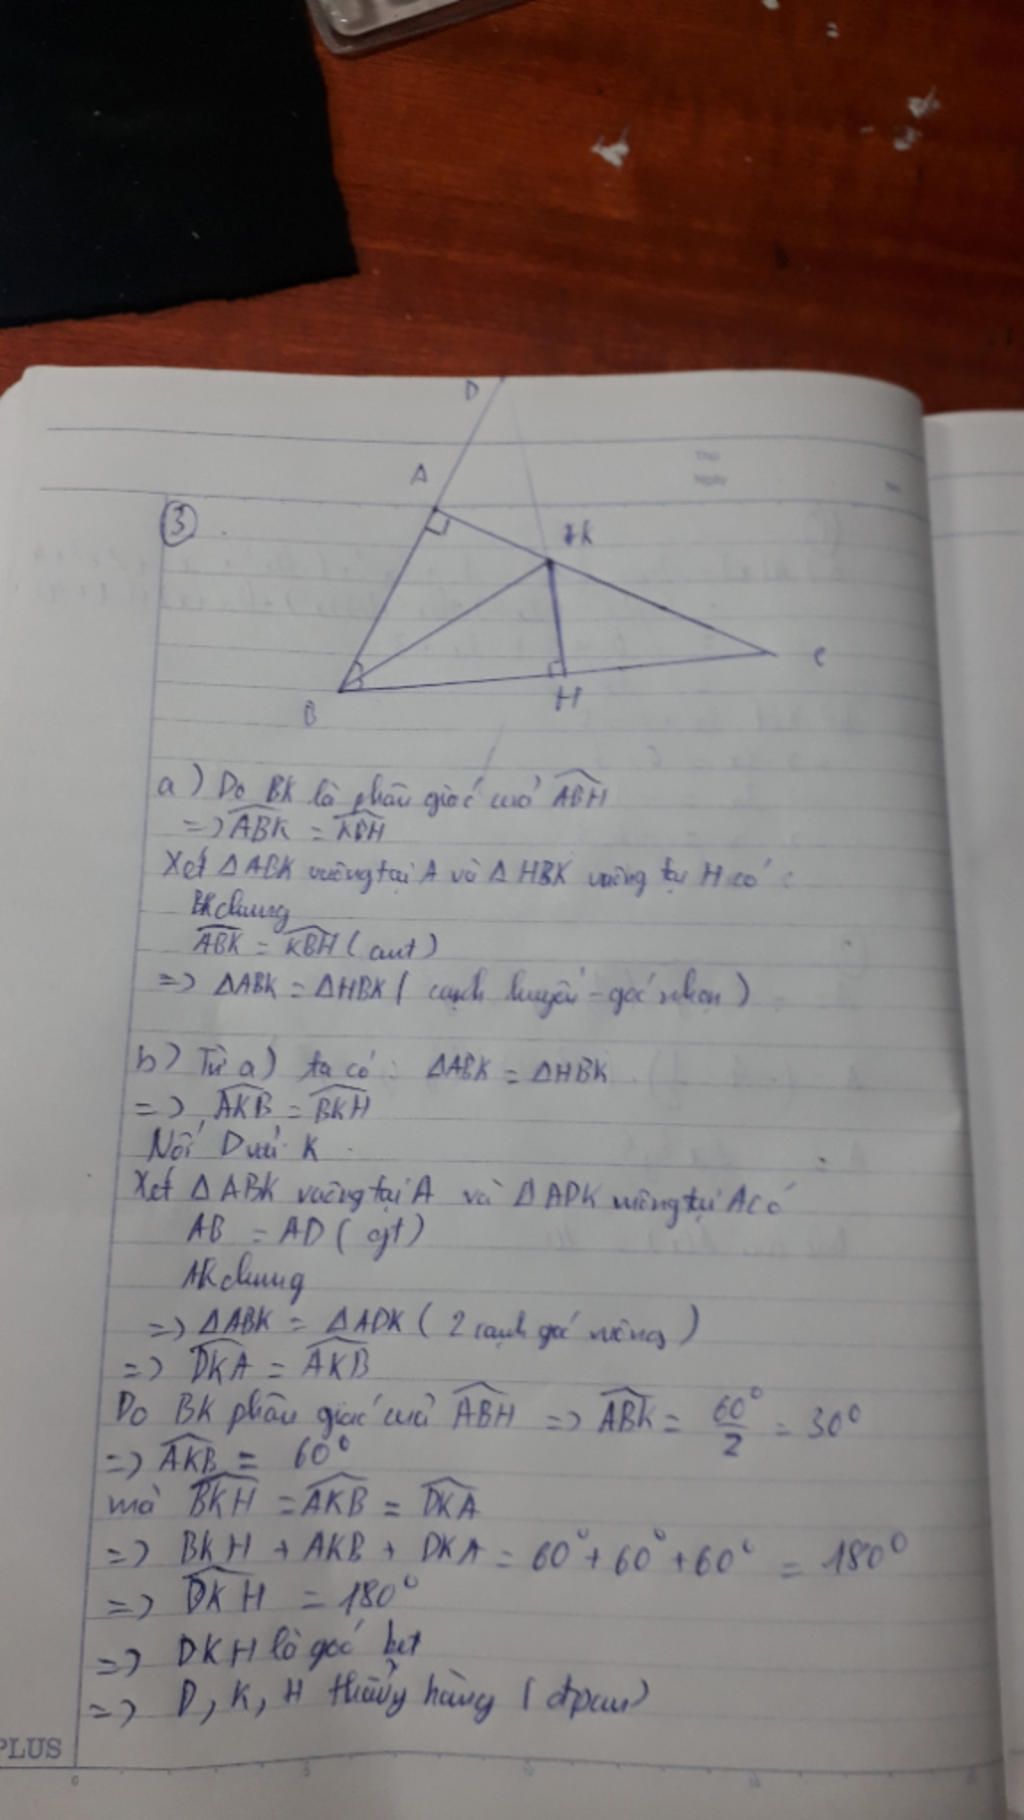 D
Thứ
Ngày
A
③
K
C
B
H
a) Do BK là phân giác của ABH
=> ABK = KBH
Xét Δ ABK vuông tại A và Δ HBK vuông tại H có :
BK chung
ABK = KBH ( cmt )
=> ΔABK = ΔHBK ( cạnh huyền - góc nhọn )
b) Từ a) ta có : ΔABK = ΔHBK
=> AKB = BKH
Nối D với K
Xét Δ ABK vuông tại A và Δ ADK vuông tại A có
AB = AD ( gt )
AK chung
=> ΔABK = ΔADK ( 2 cạnh góc vuông )
=> DKA = AKB
Do BK phân giác của ABH => ABK = 60°/2 = 30°
=> AKB = 60°
mà BKH = AKB = DKA
=> BKH + AKB + DKA = 60° + 60° + 60° = 180°
=> DKH = 180°
=> DKH là góc bẹt
=> D, K, H thẳng hàng ( đpcm )
PLUS
0 5 10